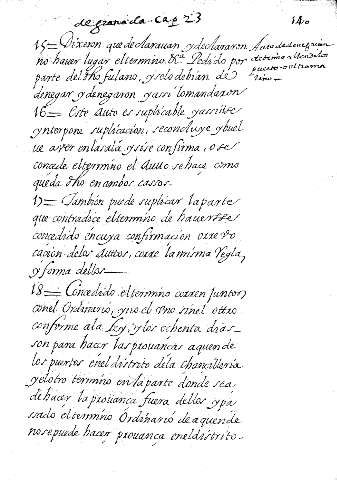 de granada. Cap 23
140
15 = Dixeron que declarauan, y declararon
no hauer lugar el termino. &ra Pedido por
parte del dho fulano, y se lo debian de
denegar y denegaron, y assi lo mandaron
Auto de denegación
de termino a llende los
puertos o ultrama
rino.
16 = Este Auto es suplicable y assi se
ynterpone suplicacion, se concluye y buel
ue a ver en la sala, y si se confirma, o se
concede el termino el Auto se haçe como
queda dho en ambos casos.
17 = Tambien puede suplicar la parte
que contradice el termino de hauersele
concedido en cuya confirmacion o rreuo
cacion de los Autos, corre la misma Regla,
y forma de ellos
18 = Concedido el termino corren juntos,
con el Ordinario, y no el vno sin el otro
conforme a la Ley, y los ochenta dias
son para hacer las prouanças aquende
los puertos en el distrito de la Chancilleria
y el otro termino en la parte donde sea
de hacer la prouança fuera de ellos y pa
sado el termino Ordinario de aquende
no se puede hacer prouança en el distrito